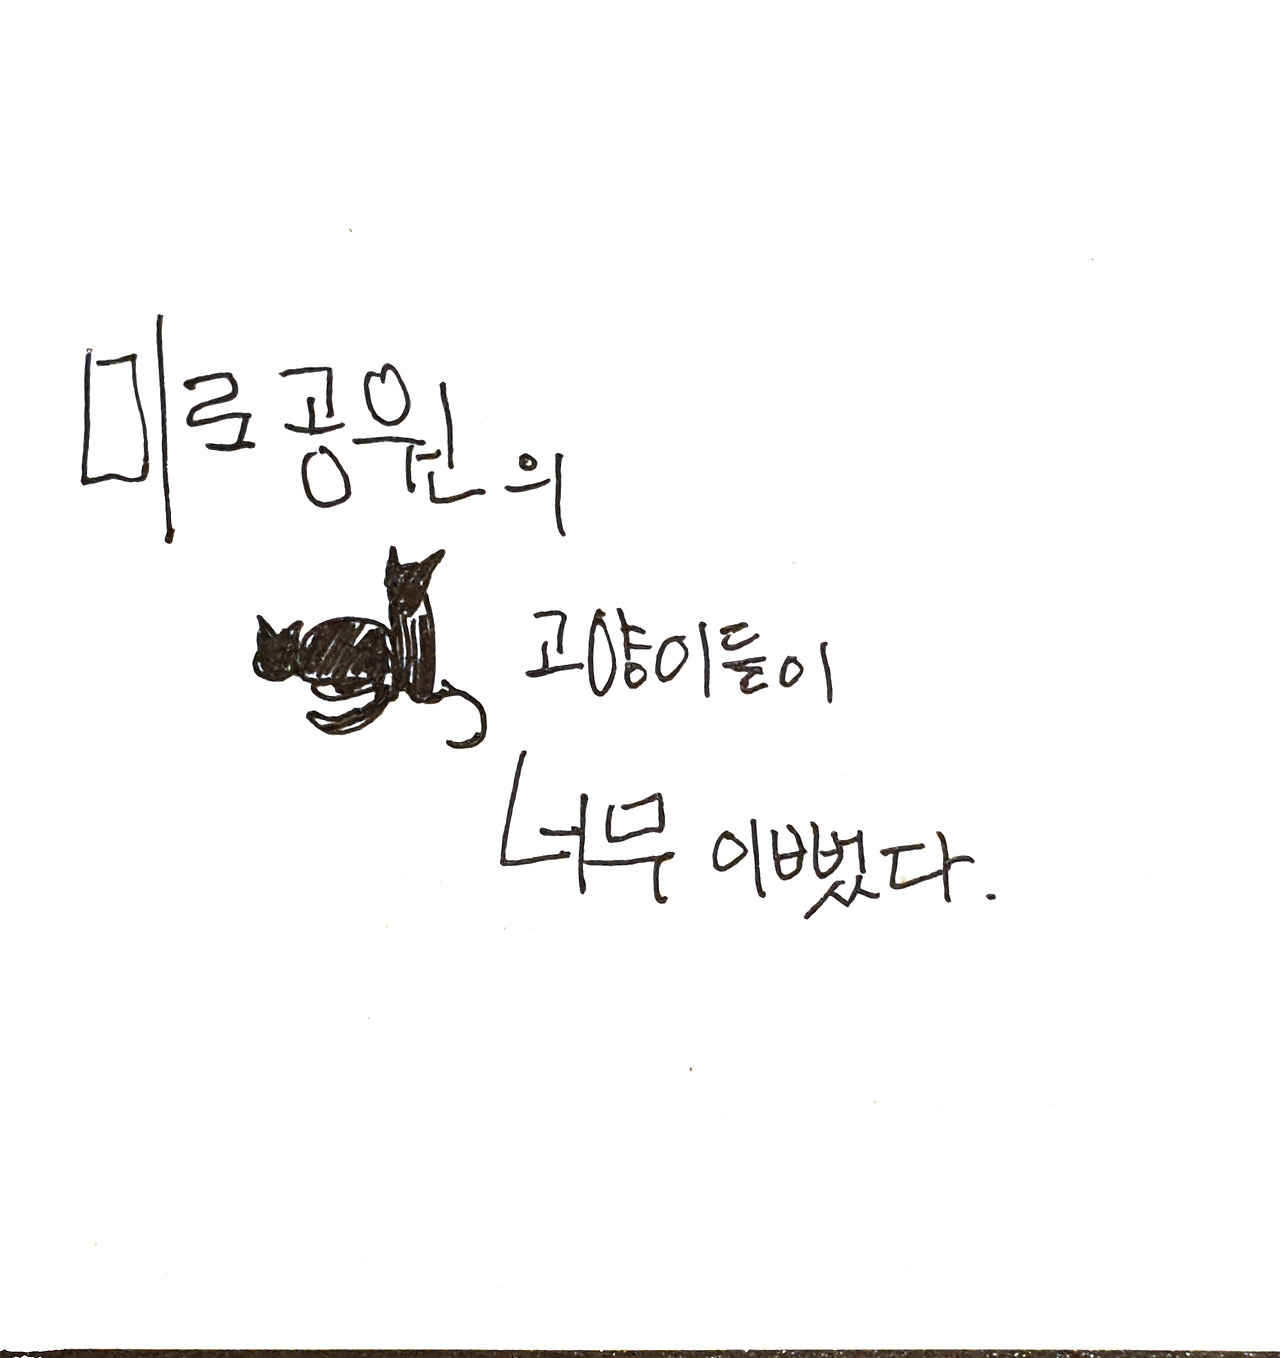 미로공원의
고양이들이
너무 이뻤다.